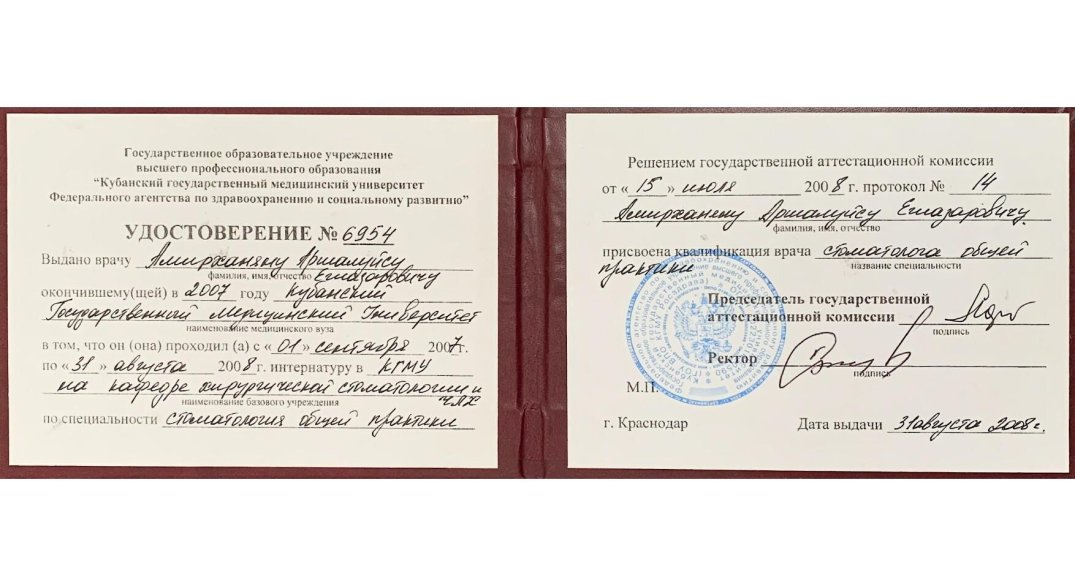 Государственное образовательное учреждение
высшего профессионального образования
“Кубанский государственный медицинский университет
Федерального агентства по здравоохранению и социальному развитию”
УДОСТОВЕРЕНИЕ № 6954
Выдано врачу Амирханяну Аршалуйсу
фамилия, имя, отчество Егиазаровичу
окончившему(щей) в 2007 году Кубанский
Государственный Медицинский Университет
наименование медицинского вуза
в том, что он (она) проходил (а) с «01» сентября 2007г.
по «31» августа 2008 г. интернатуру в КГМУ
на кафедре хирургической стоматологии и
наименование базового учреждения ЧЛХ
по специальности стоматология общей практики
Решением государственной аттестационной комиссии
от «15» июля 2008 г. протокол № 14
Амирханяну Аршалуйсу Егиазаровичу
фамилия, имя, отчество
присвоена квалификация врача стоматолога общей
практики название специальности
Председатель государственной
аттестационной комиссии
подпись
Ректор
подпись
М.П.
г. Краснодар Дата выдачи 31 августа 2008 г.